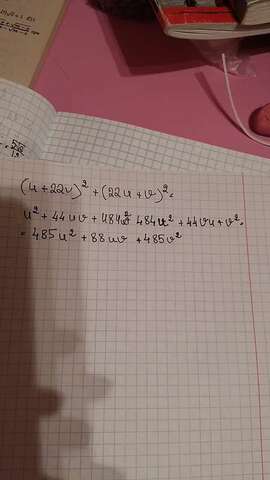 (u+22v)² + (22u+v)² =
u² + 44uv + 484v² 484u² + 44vu + v² =
= 485u² + 88uv + 485v²